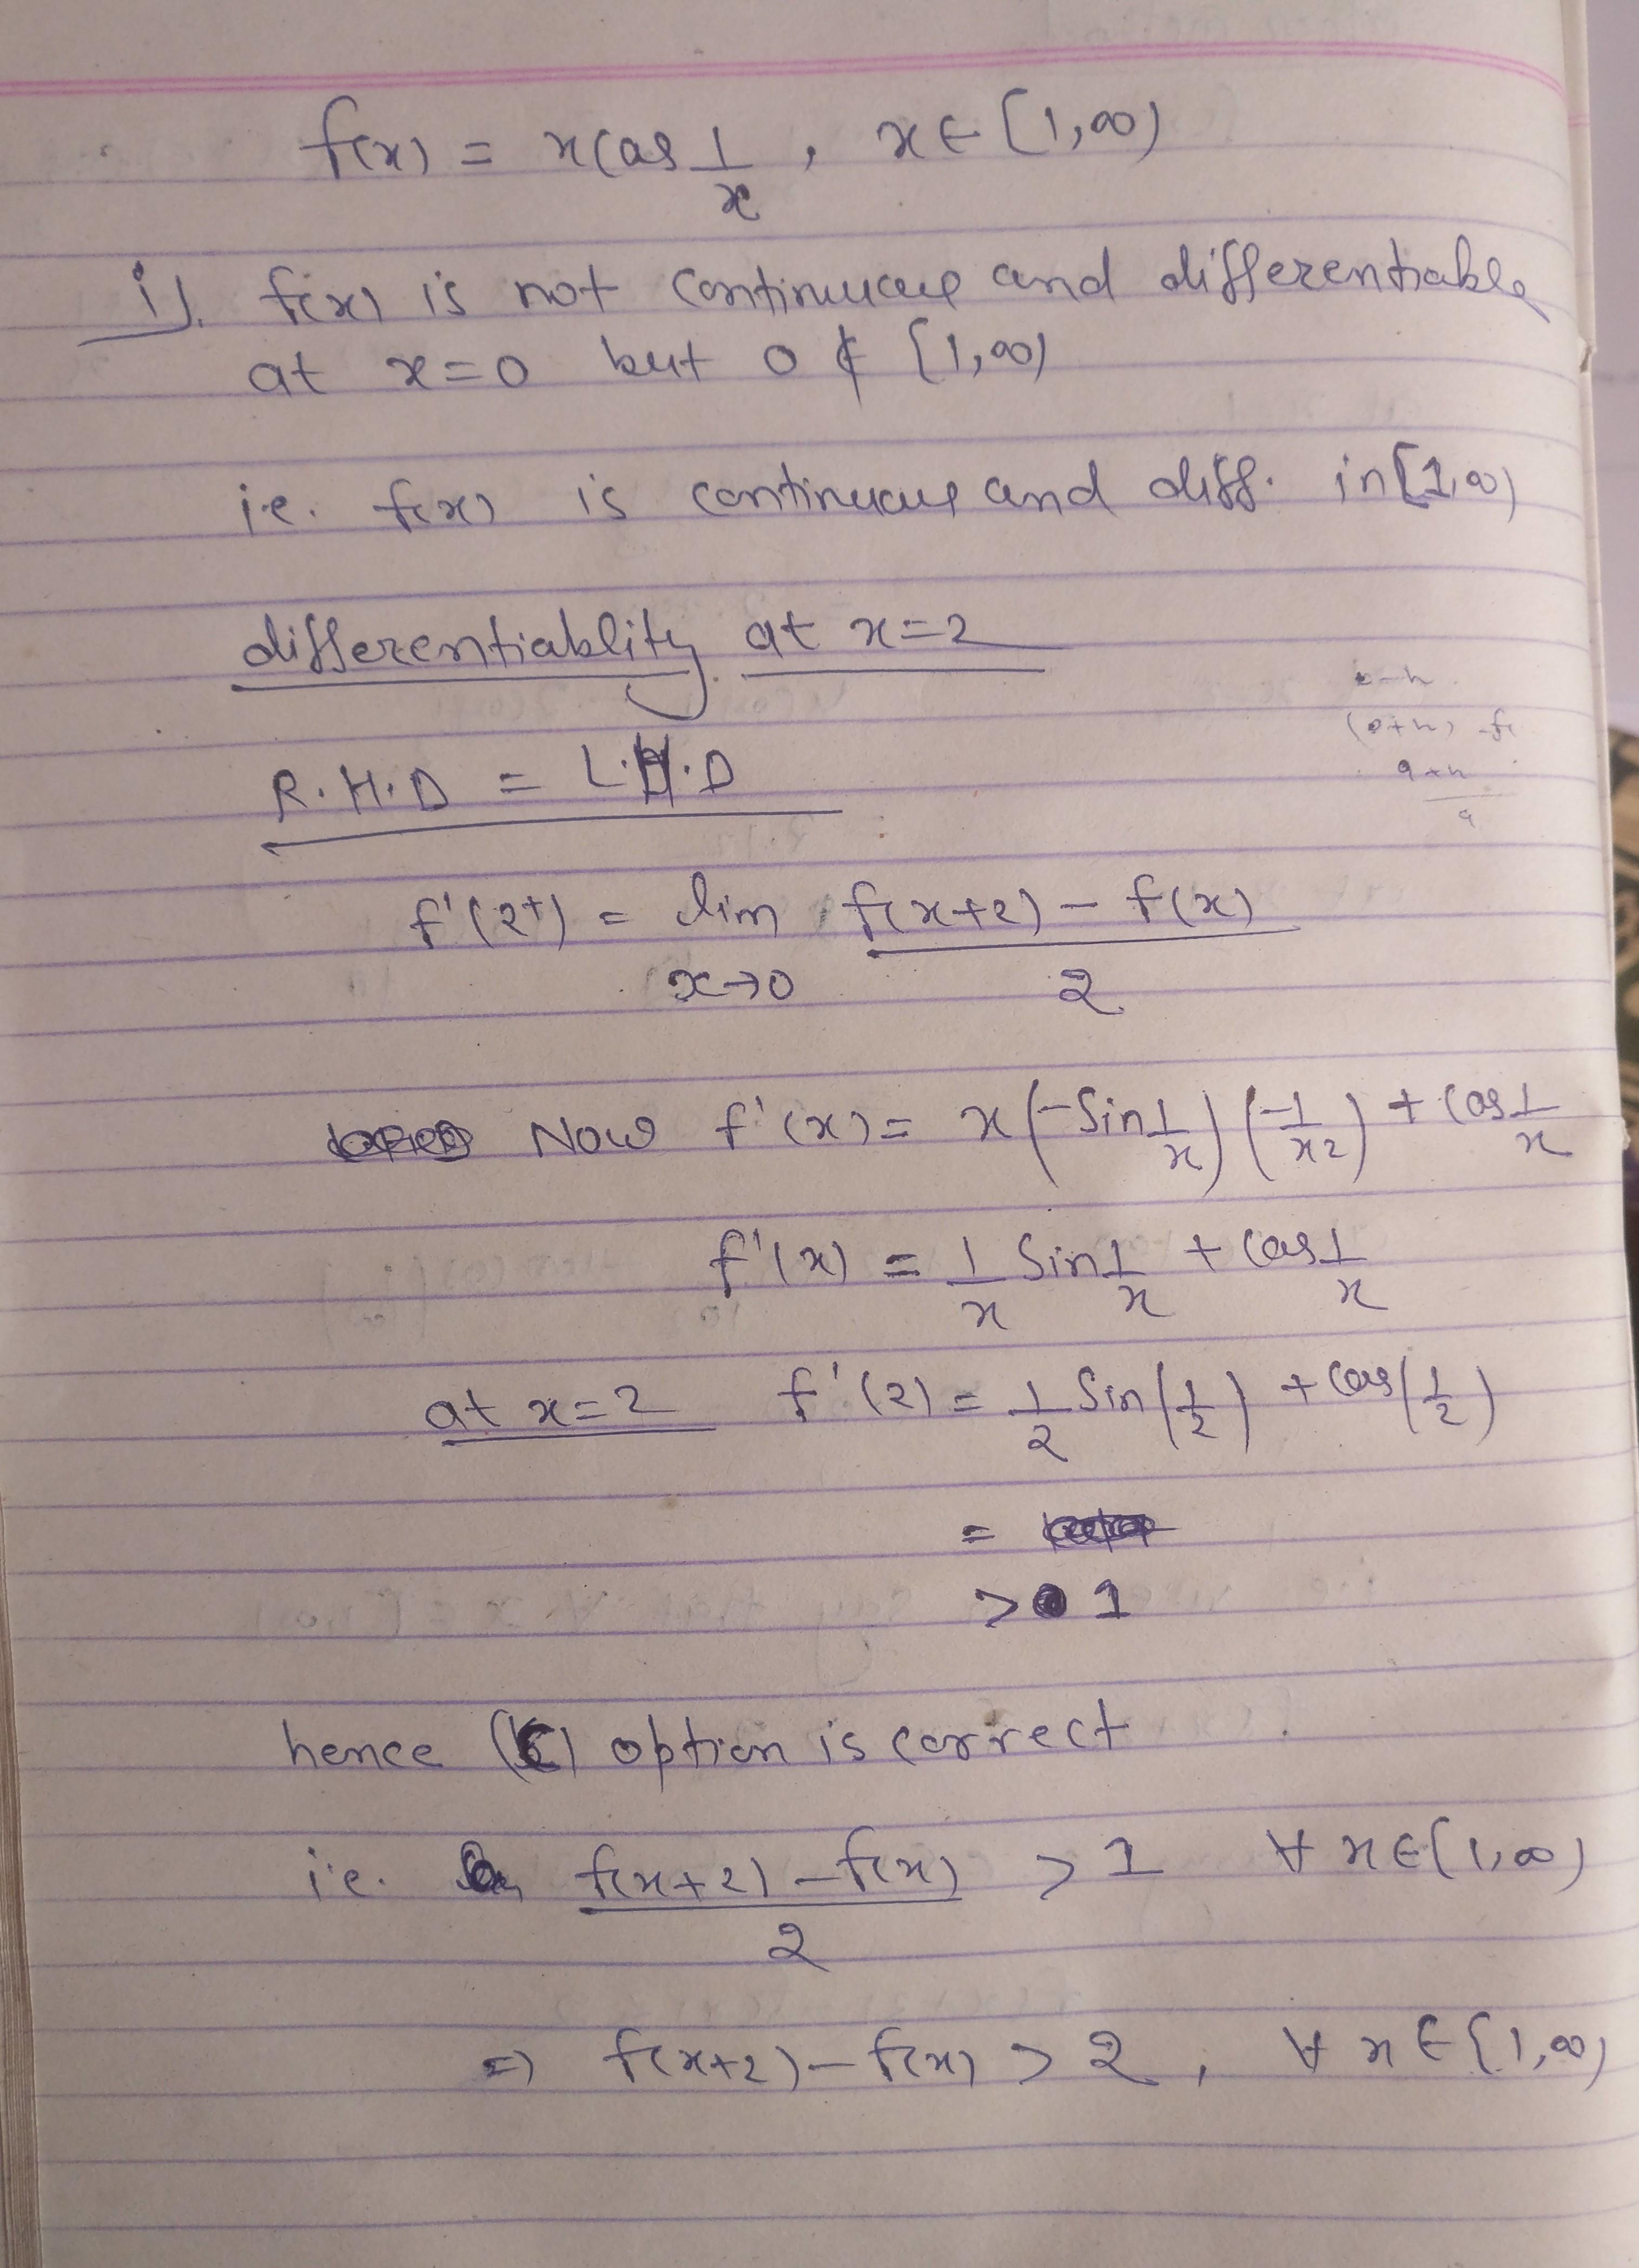 f(x) = x cos 1/x , x ∈ [1,∞)
i). f(x) is not continuous and differentiable
at x=0 but 0 ∉ [1,∞)
i.e. f(x) is continuous and diff. in [1,∞)
differentiablity at x=2
R.H.D = L.H.D
f'(2+) = lim x→0 (f(x+2) - f(x))/2
Now f'(x) = x(-Sin 1/x)(-1/x2) + Cos 1/x
f'(x) = 1/x Sin 1/x + Cos 1/x
at x=2 f'(2) = 1/2 Sin(1/2) + Cos(1/2)
=
> 1
hence (C) option is correct
i.e. (f(x+2) - f(x))/2 > 1 ∀ x∈[1,∞)
⇒ f(x+2) - f(x) > 2 , ∀ x∈[1,∞)